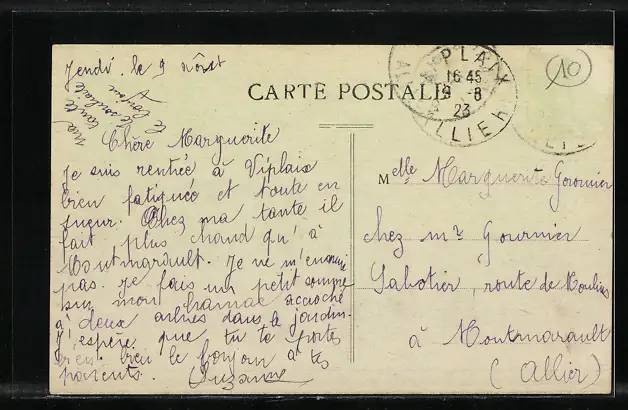 Jeudi, le 9 Août
ma tante te souhaite le bonjour
CARTE POSTALE
VIPLAIX
16 45
9 - 8
23
ALLIER
10
Chère Marguerite
Je suis rentrée à Viplaix
bien fatiguée et toute en
sueur. Chez ma tante il
fait plus chaud qu'à
Montmarault. Je ne m'ennuie
pas. Je fais un petit somme
sur mon hamac accroché
à deux arbres dans le jardin.
J'espère que tu te portes
bien. bien le bonjour à tes
parents. Suzanne
Melle Marguerite Gourmier
chez mr Gourmier
Sabotier, route de Moulins
à Montmarault
(Allier)